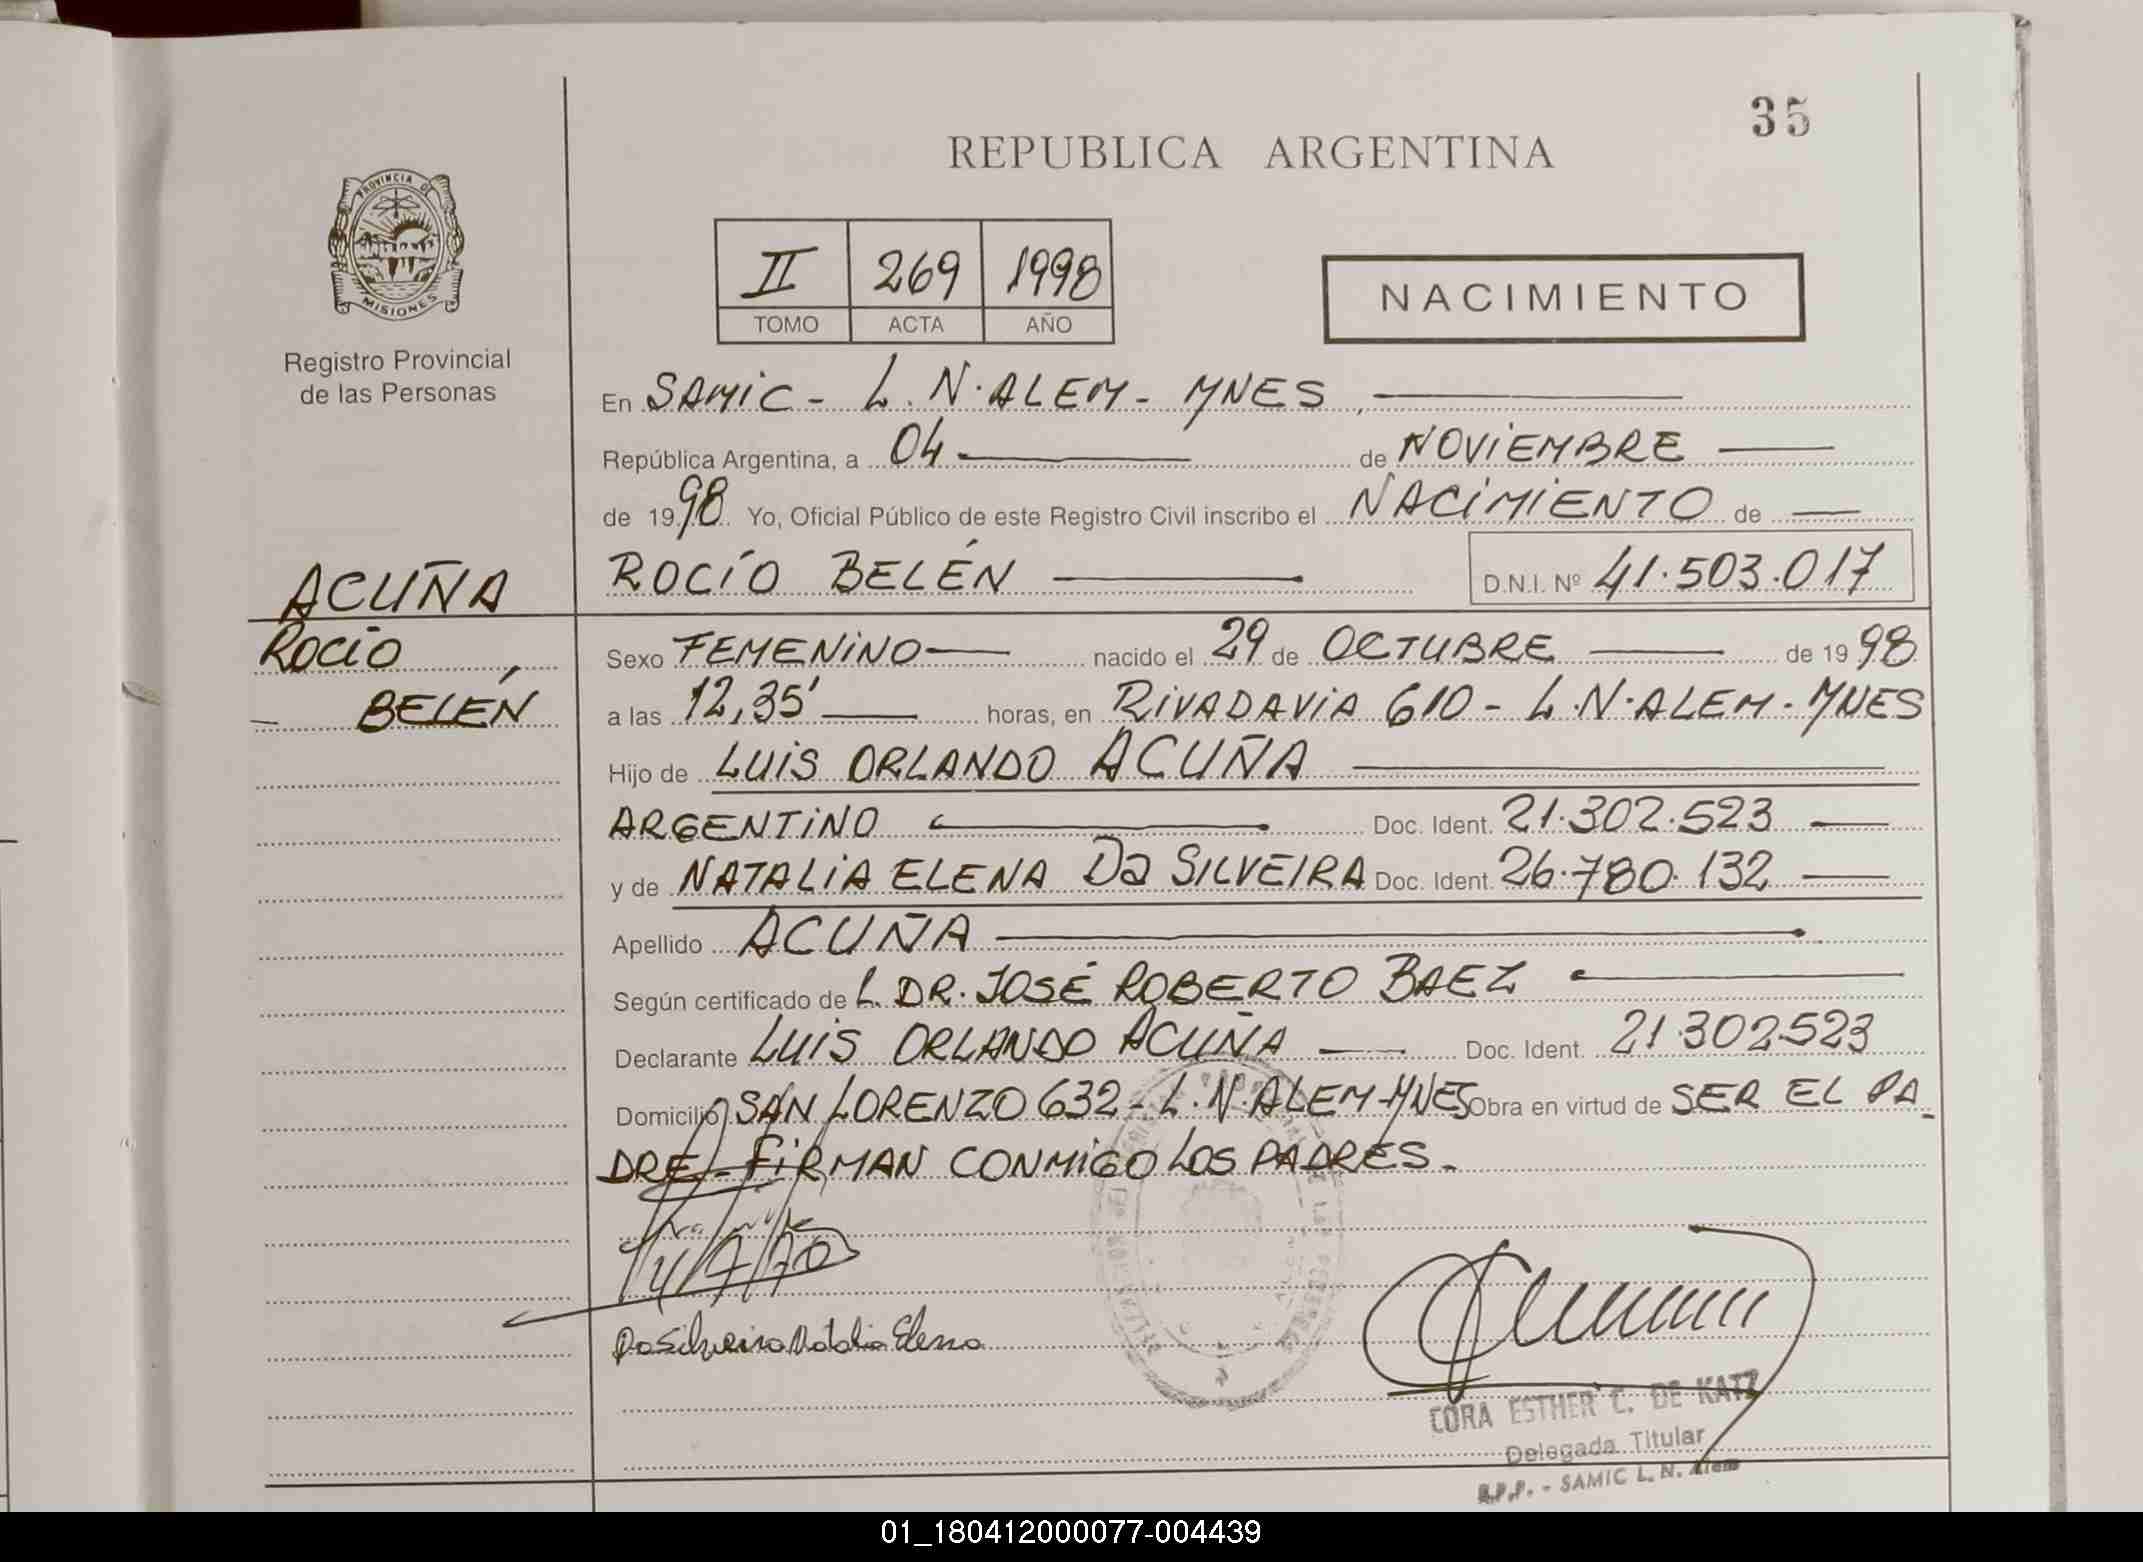 35
REPUBLICA ARGENTINA
PROVINCIA DE
MISIONES
Registro Provincial
de las Personas
II 269 1998
TOMO ACTA AÑO
NACIMIENTO
En SAMIC - L. N. ALEM - MNES
República Argentina, a 04 de NOVIEMBRE
de 1998 Yo, Oficial Público de este Registro Civil inscribo el NACIMIENTO de
ROCÍO BELÉN D.N.I. Nº 41.503.017
ACUÑA
ROCÍO
BELÉN
Sexo FEMENINO nacido el 29 de OCTUBRE de 1998
a las 12,35' horas, en RIVADAVIA 610 - L.N.ALEM - MNES
Hijo de LUIS ORLANDO ACUÑA
ARGENTINO Doc. Ident. 21.302.523
y de NATALIA ELENA Da SILVEIRA Doc. Ident. 26.780.132
Apellido ACUÑA
Según certificado de L. DR. JOSÉ ROBERTO BAEZ
Declarante LUIS ORLANDO ACUÑA Doc. Ident. 21.302.523
Domicilio SAN LORENZO 632 - L.N.ALEM-MNES Obra en virtud de SER EL PA-
DRE - FIRMAN CONMIGO LOS PADRES.
Da Silveira Natalia Elena
CORA ESTHER C. DE KATZ
Delegada Titular
R.P.P. - SAMIC L. N. Alem
01_180412000077-004439